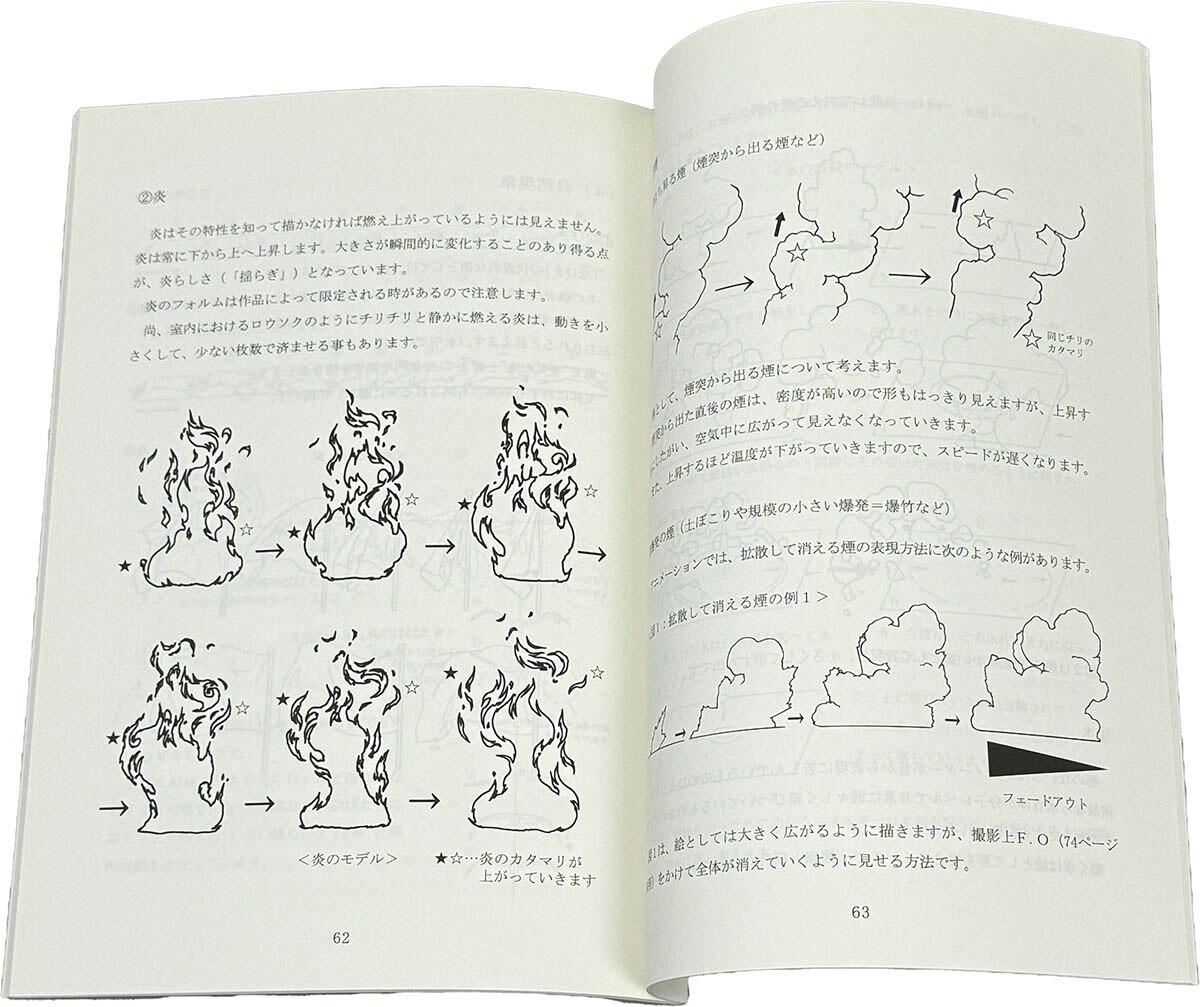 ②炎
炎はその特性を知って描かなければ燃え上がっているようには見えません。
炎は常に下から上へ上昇します。大きさが瞬間的に変化することのあり得る点
が、炎らしさ(「揺らぎ」)となっています。
炎のフォルムは作品によって限定される時があるので注意します。
尚、室内におけるロウソクのようにチリチリと静かに燃える炎は、動きを小
さくして、少ない枚数で済ませる事もあります。
★
☆
★
☆
★
☆
★
☆
★
☆
★
☆
<炎のモデル>
★☆…炎のカタマリが
上がっていきます
62
昇る煙(煙突から出る煙など)
☆
☆
☆
☆ 同じチリの
カタマリ
として、煙突から出る煙について考えます。
突から出た直後の煙は、密度が高いので形もはっきり見えますが、上昇す
にしたがい、空気中に広がって見えなくなっていきます。
また、上昇するほど温度が下がっていきますので、スピードが遅くなります。
発の煙(土ぼこりや規模の小さい爆発=爆竹など)
ニメーションでは、拡散して消える煙の表現方法に次のような例があります。
図1:拡散して消える煙の例1>
フェードアウト
図1は、絵としては大きく広がるように描きますが、撮影上F.O(74ページ
)をかけて全体が消えていくように見せる方法です。
63